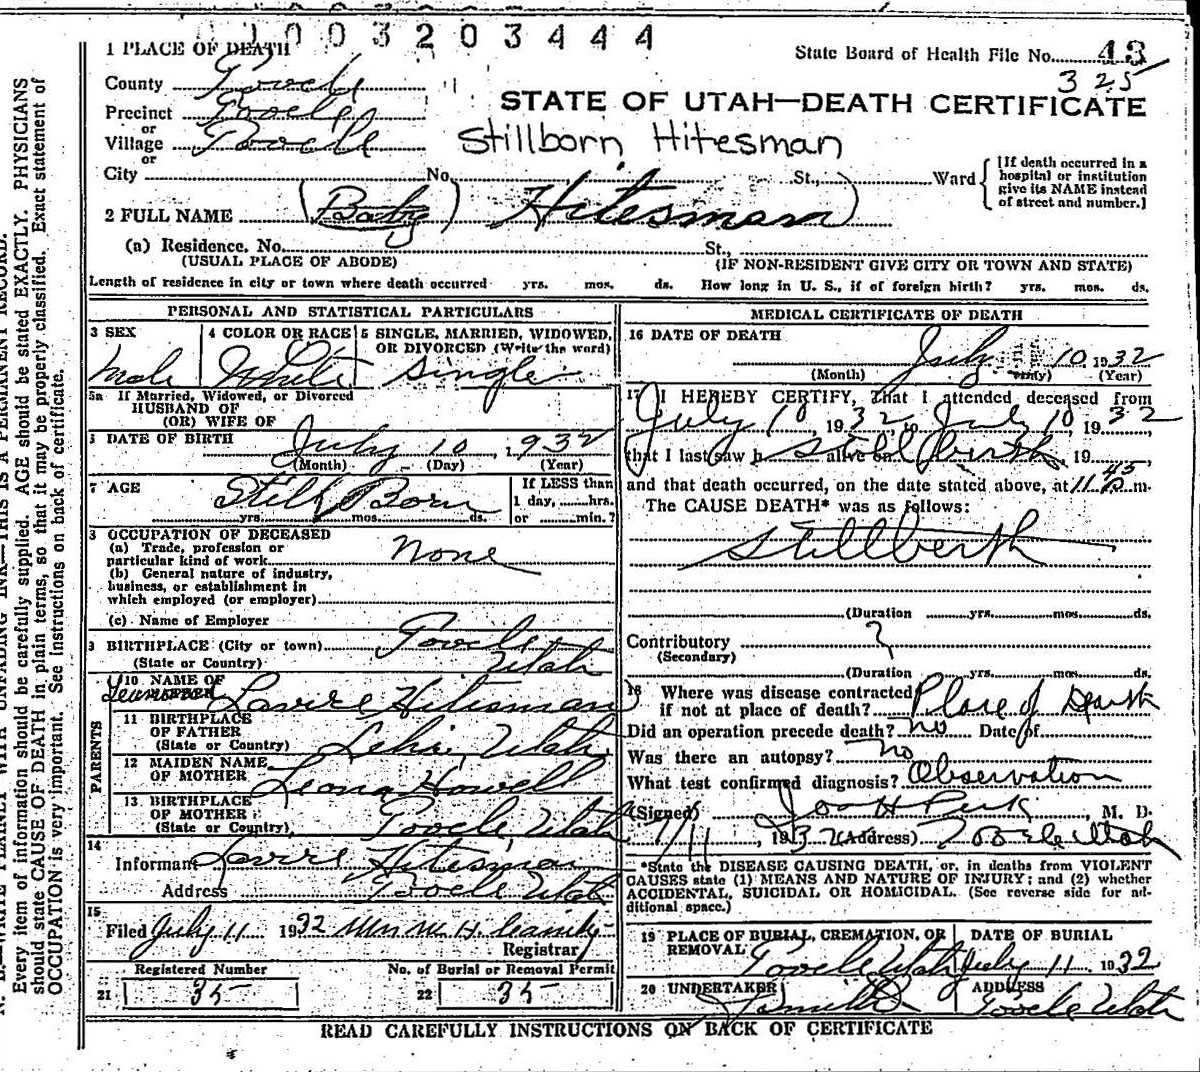 0 1 0 0 3 2 0 3 4 4 4
1 PLACE OF DEATH
State Board of Health File No. 43
325
County Tooele
Precinct Tooele
or
Village Tooele
or
City No. St., Ward
STATE OF UTAH—DEATH CERTIFICATE
Stillborn Hitesman
[If death occurred in a
hospital or institution
give its NAME instead
of street and number.]
2 FULL NAME (Baby Hitesman)
(a) Residence. No. St.,
(USUAL PLACE OF ABODE) (IF NON-RESIDENT GIVE CITY OR TOWN AND STATE)
Length of residence in city or town where death occurred yrs. mos. ds. How long in U. S., if of foreign birth? yrs. mos. ds.
PERSONAL AND STATISTICAL PARTICULARS
3 SEX 4 COLOR OR RACE 5 SINGLE, MARRIED, WIDOWED,
OR DIVORCED (Write the word)
Male White Single
5a If Married, Widowed, or Divorced
HUSBAND OF
(OR) WIFE OF
DATE OF BIRTH July 10, 1932
(Month) (Day) (Year)
7 AGE Still Born If LESS than
1 day, hrs.
yrs. mos. ds. or min.?
OCCUPATION OF DECEASED
(a) Trade, profession or
particular kind of work None
(b) General nature of industry,
business, or establishment in
which employed (or employer)
(c) Name of Employer
BIRTHPLACE (City or town) Tooele
(State or Country) Utah
PARENTS
10 NAME OF
Hitesman
11 BIRTHPLACE
OF FATHER
(State or Country) Lehi, Utah
12 MAIDEN NAME
OF MOTHER Leona Howell
13 BIRTHPLACE
OF MOTHER
(State or Country) Tooele Utah
14
Informant Hitesman
Address Tooele Utah
15
Filed July 11 1932
Registrar
Registered Number No. of Burial or Removal Permit
21 35 22 35
MEDICAL CERTIFICATE OF DEATH
16 DATE OF DEATH
July 10 1932
(Month) (Day) (Year)
17 I HEREBY CERTIFY, That I attended deceased from
July 10, 1932, to July 10, 1932
that I last saw h alive on Still Berth, 19
and that death occurred, on the date stated above, at 11 45 P m.
The CAUSE DEATH* was as follows:
Stillberth
(Duration yrs. mos. ds.
Contributory ?
(Secondary)
(Duration yrs. mos. ds.
18 Where was disease contracted
if not at place of death? Place of Death
Did an operation precede death? No Date of
Was there an autopsy? No
What test confirmed diagnosis? Observation
(Signed) M. D.
7/11, 1932 (Address) Tooele Utah
*State the DISEASE CAUSING DEATH, or, in deaths from VIOLENT
CAUSES state (1) MEANS AND NATURE OF INJURY; and (2) whether
ACCIDENTAL, SUICIDAL OR HOMICIDAL. (See reverse side for ad-
ditional space.)
19 PLACE OF BURIAL, CREMATION, OR DATE OF BURIAL
REMOVAL Tooele Utah July 11 1932
20 UNDERTAKER ADDRESS
Smith Tooele Utah
READ CAREFULLY INSTRUCTIONS ON BACK OF CERTIFICATE
N. B.—WRITE PLAINLY WITH UNFADING INK—THIS IS A PERMANENT RECORD.
Every item of information should be carefully supplied. AGE should be stated EXACTLY. PHYSICIANS
should state CAUSE OF DEATH in plain terms, so that it may be properly classified. Exact statement of
OCCUPATION is very important. See instructions on back of certificate.